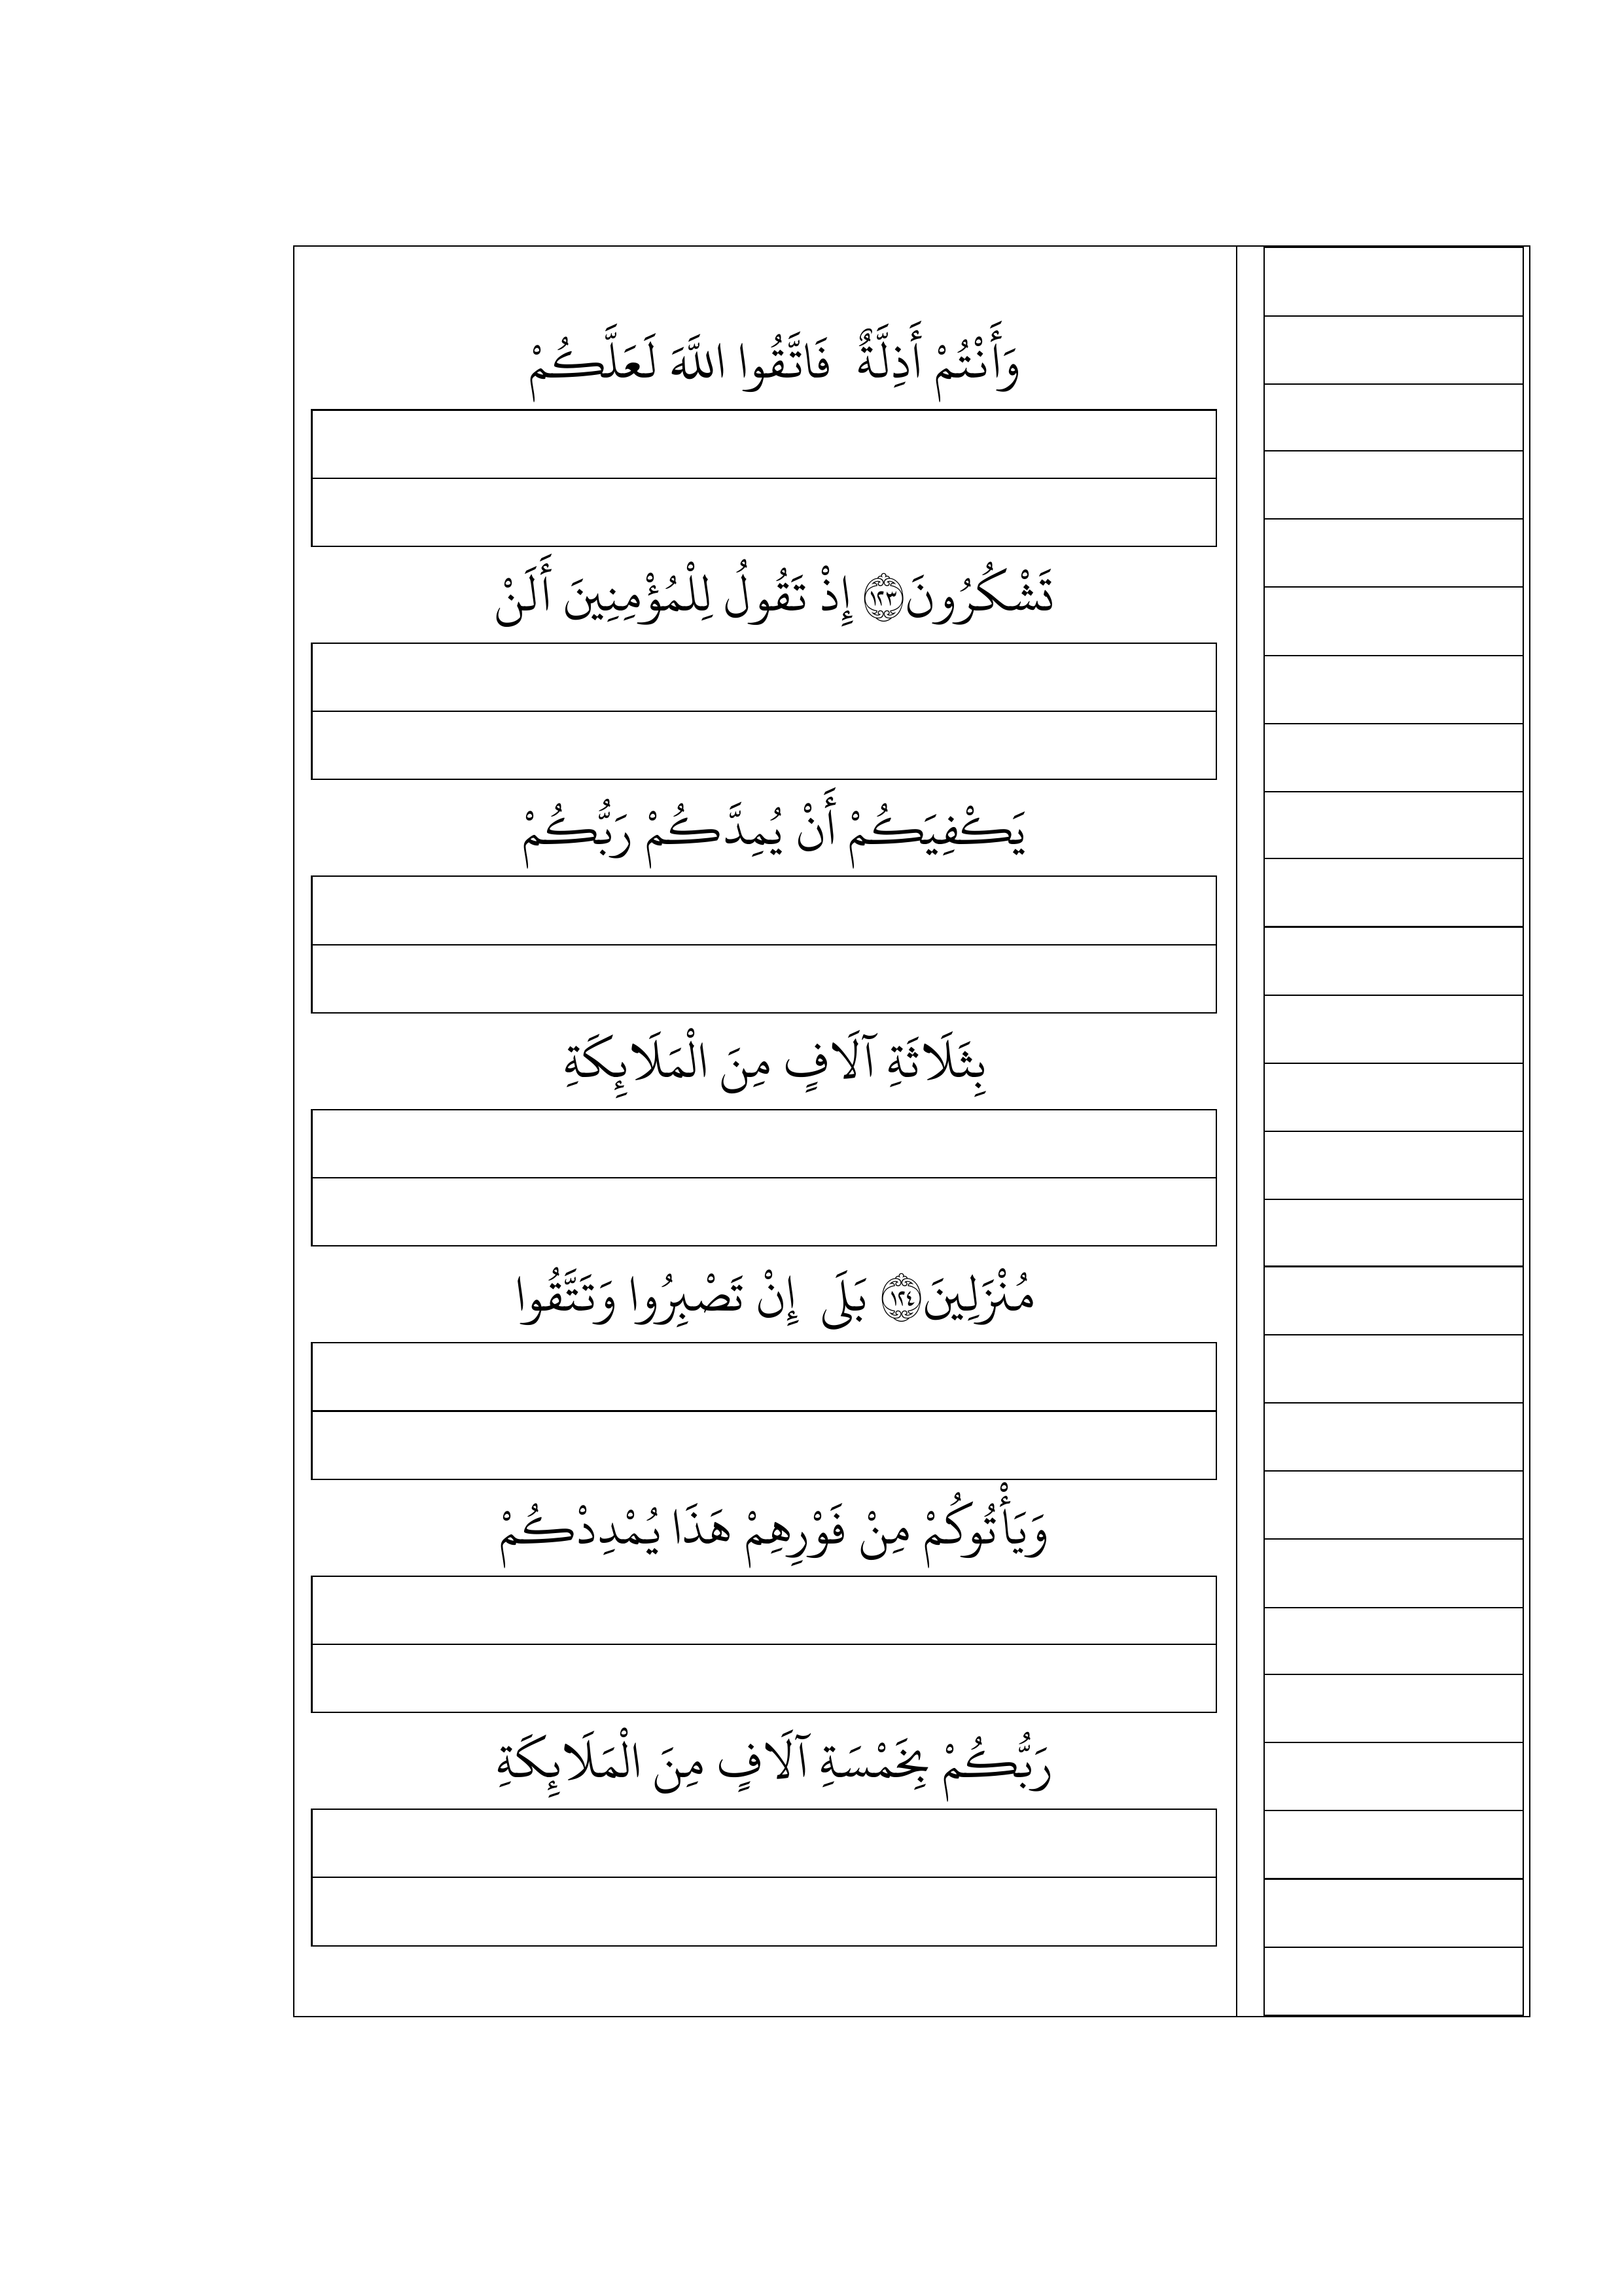 وَأَنْتُمْ أَذِلَّةٌ فَاتَّقُوا اللَّهَ لَعَلَّكُمْ
تَشْكُرُونَ ﴿١٢٣﴾ إِذْ تَقُولُ لِلْمُؤْمِنِينَ أَلَنْ
يَكْفِيَكُمْ أَنْ يُمِدَّكُمْ رَبُّكُمْ
بِثَلَاثَةِ آلَافٍ مِنَ الْمَلَائِكَةِ
مُنْزَلِينَ ﴿١٢٤﴾ بَلَى إِنْ تَصْبِرُوا وَتَتَّقُوا
وَيَأْتُوكُمْ مِنْ فَوْرِهِمْ هَذَا يُمْدِدْكُمْ
رَبُّكُمْ بِخَمْسَةِ آلَافٍ مِنَ الْمَلَائِكَةِ